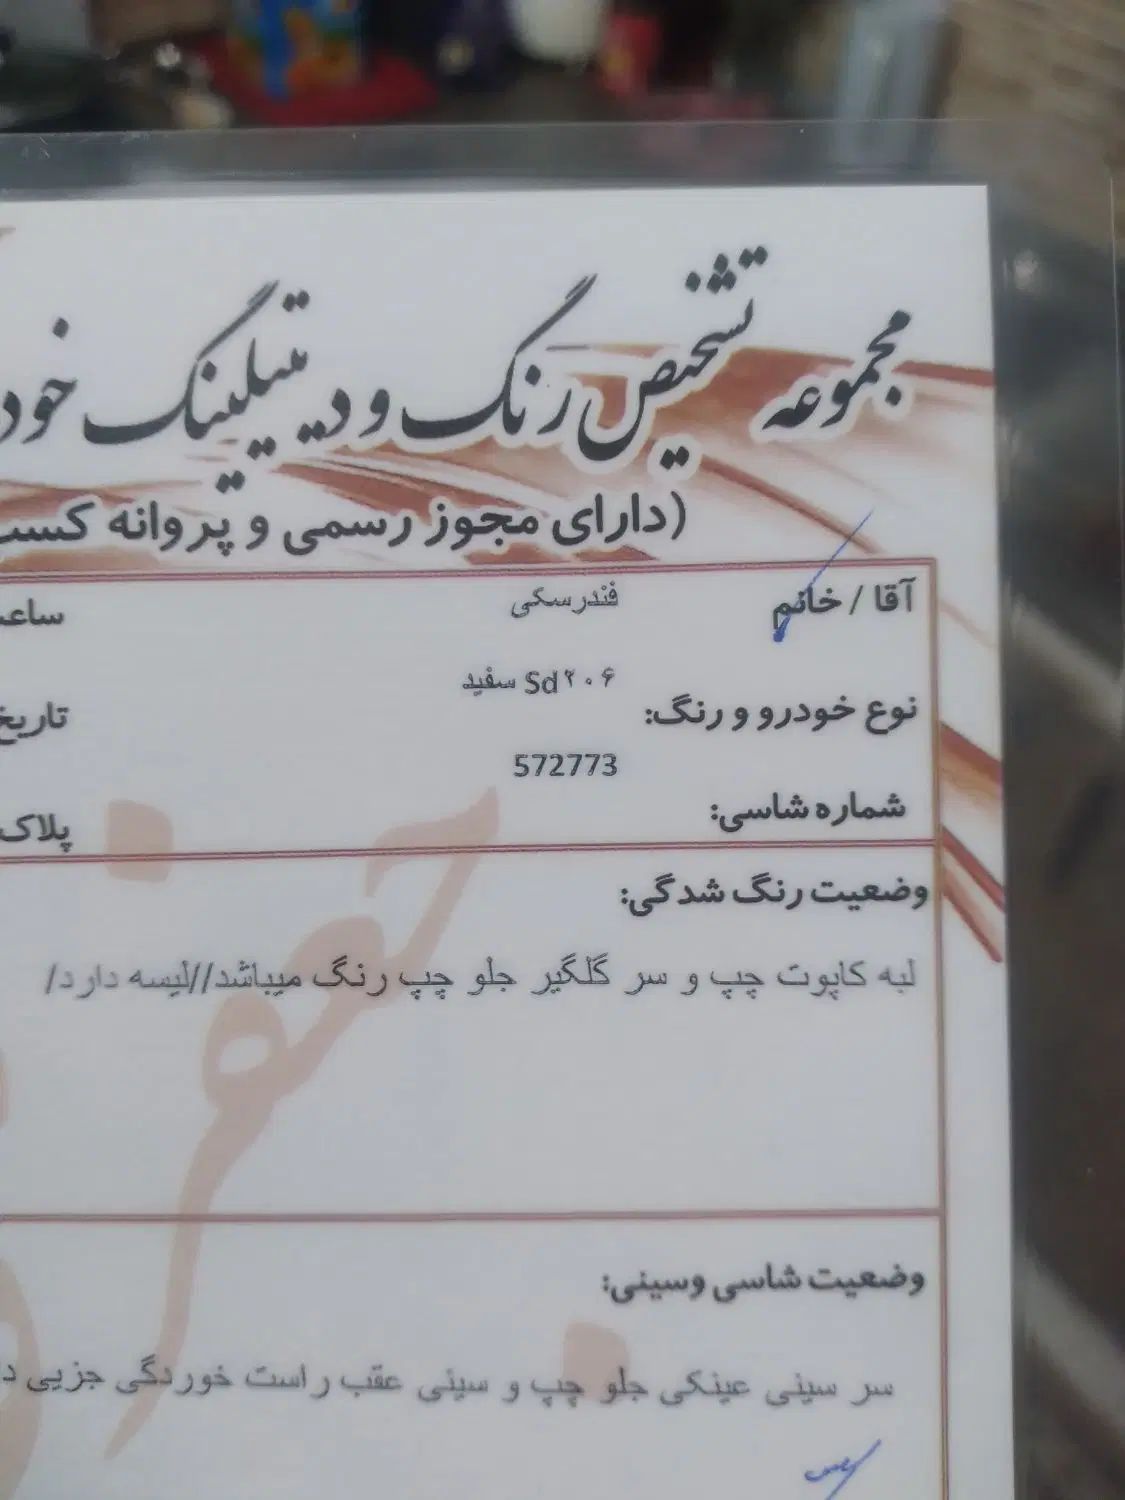 مجموعه تشخیص رنگ و دیتیلینگ خود
(دارای مجوز رسمی و پروانه کسب
آقا / خانم فندرسکی ساعت
نوع خودرو و رنگ: ۲۰۶ Sd سفید تاریخ
شماره شاسی: 572773 پلاک
وضعیت رنگ شدگی:
لبه کاپوت چپ و سر گلگیر جلو چپ رنگ میباشد//لیسه دارد/
وضعیت شاسی وسینی:
سر سینی عینکی جلو چپ و سینی عقب راست خوردگی جزیی د